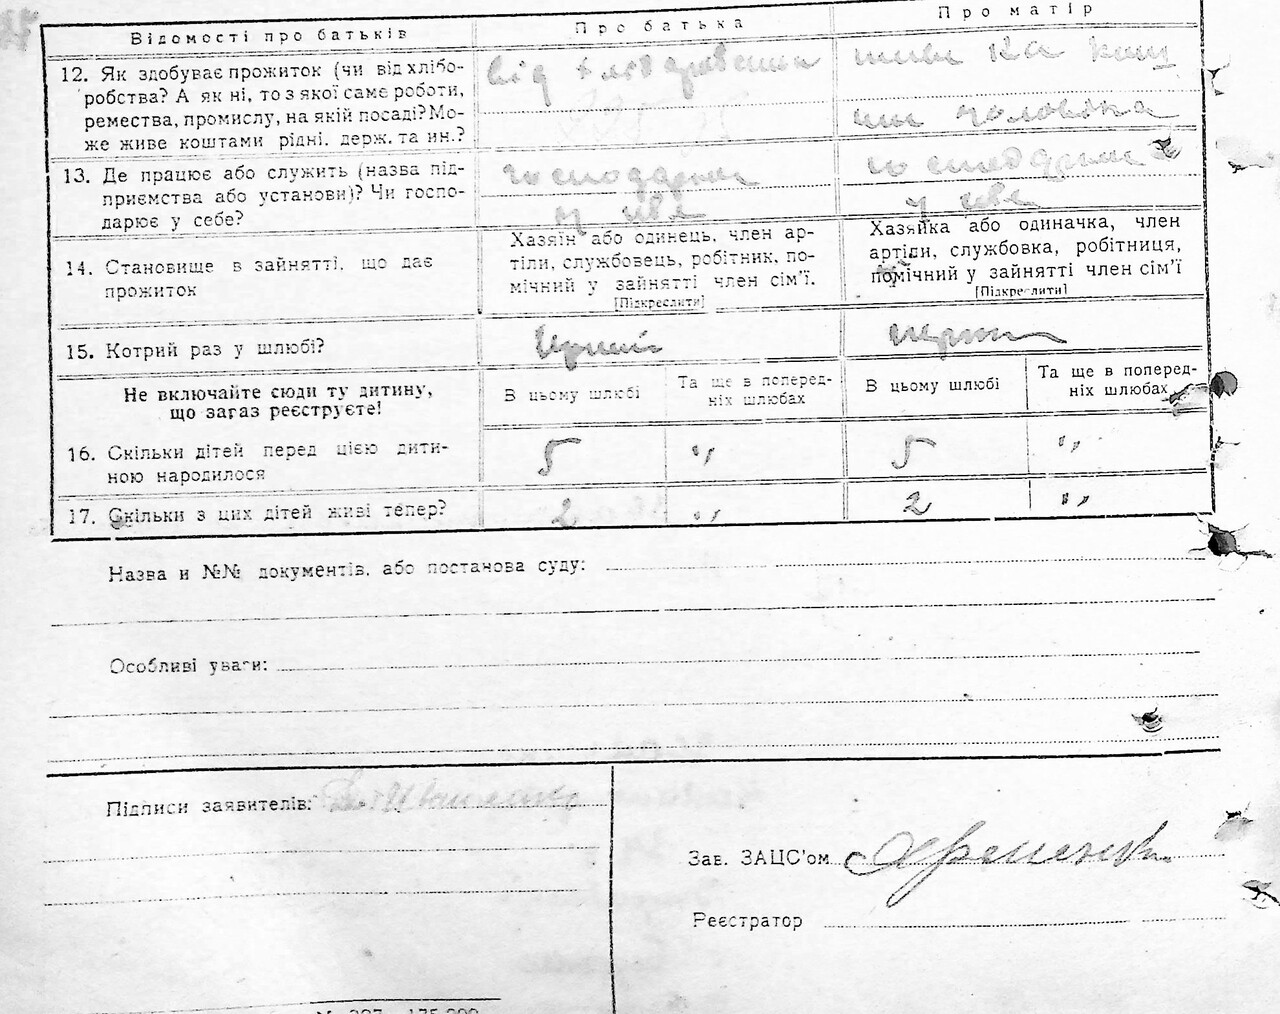 Відомості про батьків Про батька Про матір
12. Як здобуває прожиток (чи від хлібо-
робства? А як ні, то з якої саме роботи,
ремества, промислу, на якій посаді? Мо-
же живе коштами рідні, держ. та ин.?
від хліборобства
живе на кош
ти чоловіка
13. Де працює або служить (назва під-
приємства або установи)? Чи госпо-
дарює у себе?
господарює
у себе
господарює
у себе
14. Становище в зайнятті, що дає
прожиток
Хазяїн або одинець, член ар-
тілі, службовець, робітник, по-
мічний у зайнятті член сім'ї.
[Підкреслити]
Хазяйка або одиначка, член
артіли, службовка, робітниця,
помічний у зайнятті член сім'ї
[Підкреслити]
15. Котрий раз у шлюбі?
перший
перший
Не включайте сюди ту дитину,
що загаз реєструєте!
В цьому шлюбі
Та ще в поперед-
ніх шлюбах
В цьому шлюбі
Та ще в поперед-
ніх шлюбах
16. Скільки дітей перед цією дити-
ною народилося
5 „ 5 „
17. Скільки з цих дітей живі тепер? 2 „ 2 „
Назва и №№ документів, або постанова суду:
Особливі уваги:
Підписи заявителів:
Зав. ЗАЦС'ом
Реєстратор